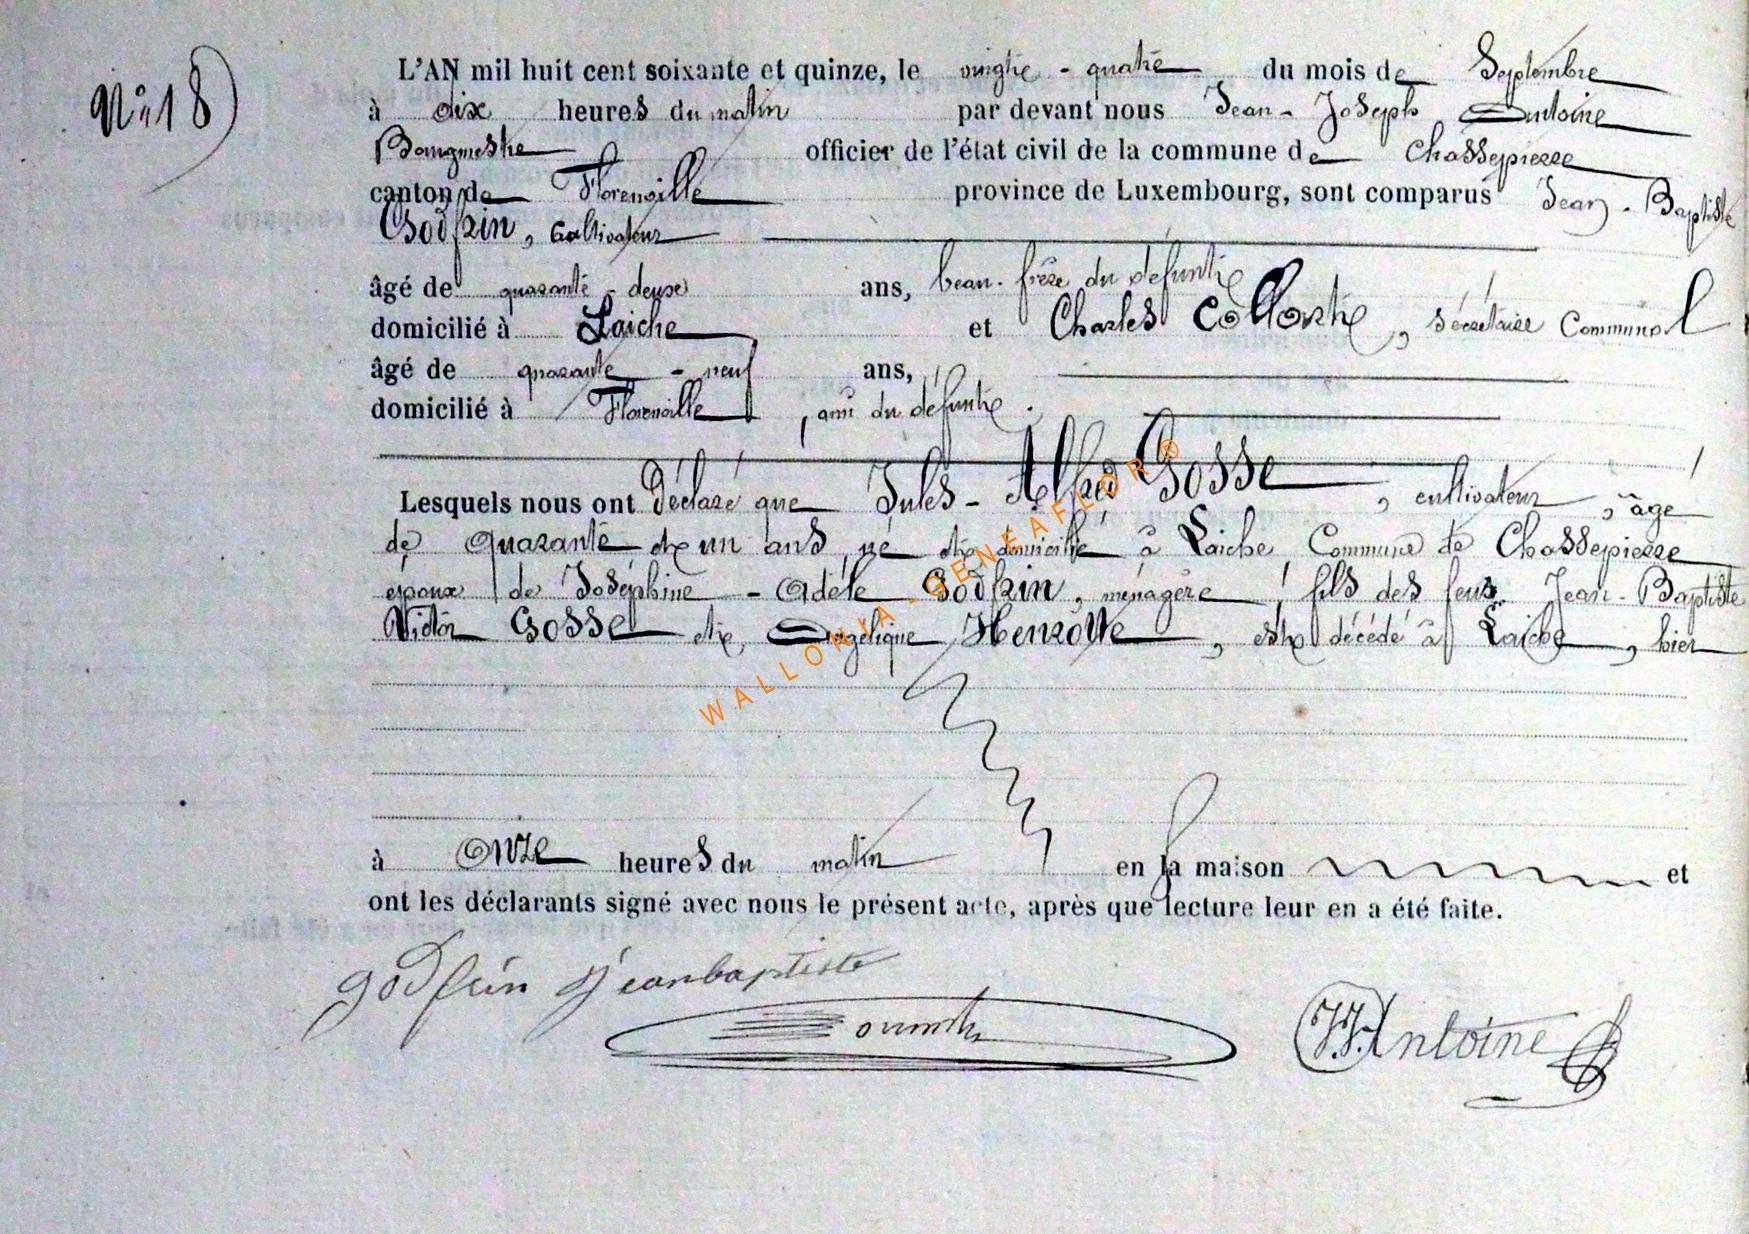 N° 18)
L'AN mil huit cent soixante et quinze, le vingt-quatre du mois de Septembre
à dix heures du matin par devant nous Jean-Joseph Antoine
Bourgmestre officier de l'état civil de la commune de Chassepierre
canton de Florenville province de Luxembourg, sont comparus Jean-Baptiste
Godfrin, Cultivateur
âgé de quarante-deux ans, beau-frère du défunt
domicilié à Laiche et Charles Collorte, sécrétaire Communal
âgé de quarante-neuf ans,
domicilié à Florenville, ami du défunt.
Lesquels nous ont Déclaré que Jules-Alfred Gosse, cultivateur, âgé
de quarante et un ans né et domicilié à Laiche Commune de Chassepierre
époux de Joséphine-Adèle Godfrin, ménagère, fils des feus Jean-Baptiste
Victor Gosse et Angélique Henrotte, est décédé à Laiche, hier
à onze heures du matin en la maison et
ont les déclarants signé avec nous le présent acte, après que lecture leur en a été faite.
godfrin jeanbaptiste
J.J. Antoine
WALLONIA-GENEAFLOR®